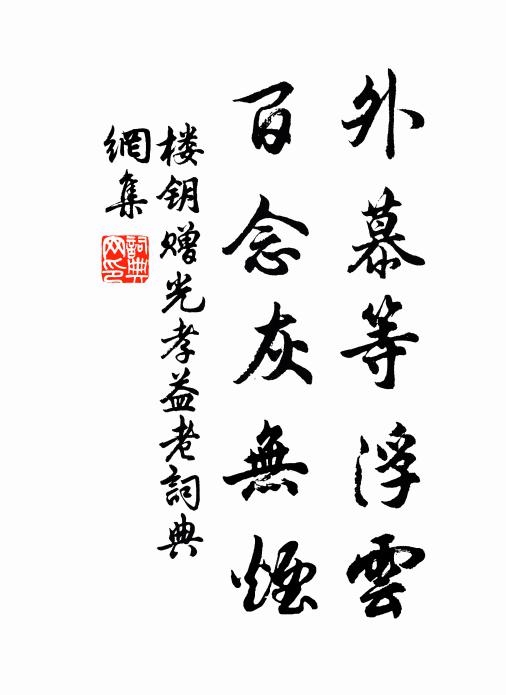 外慕等浮雲
百念灰無煙
楼钥赠光孝益老詞典
網集
詞典网印